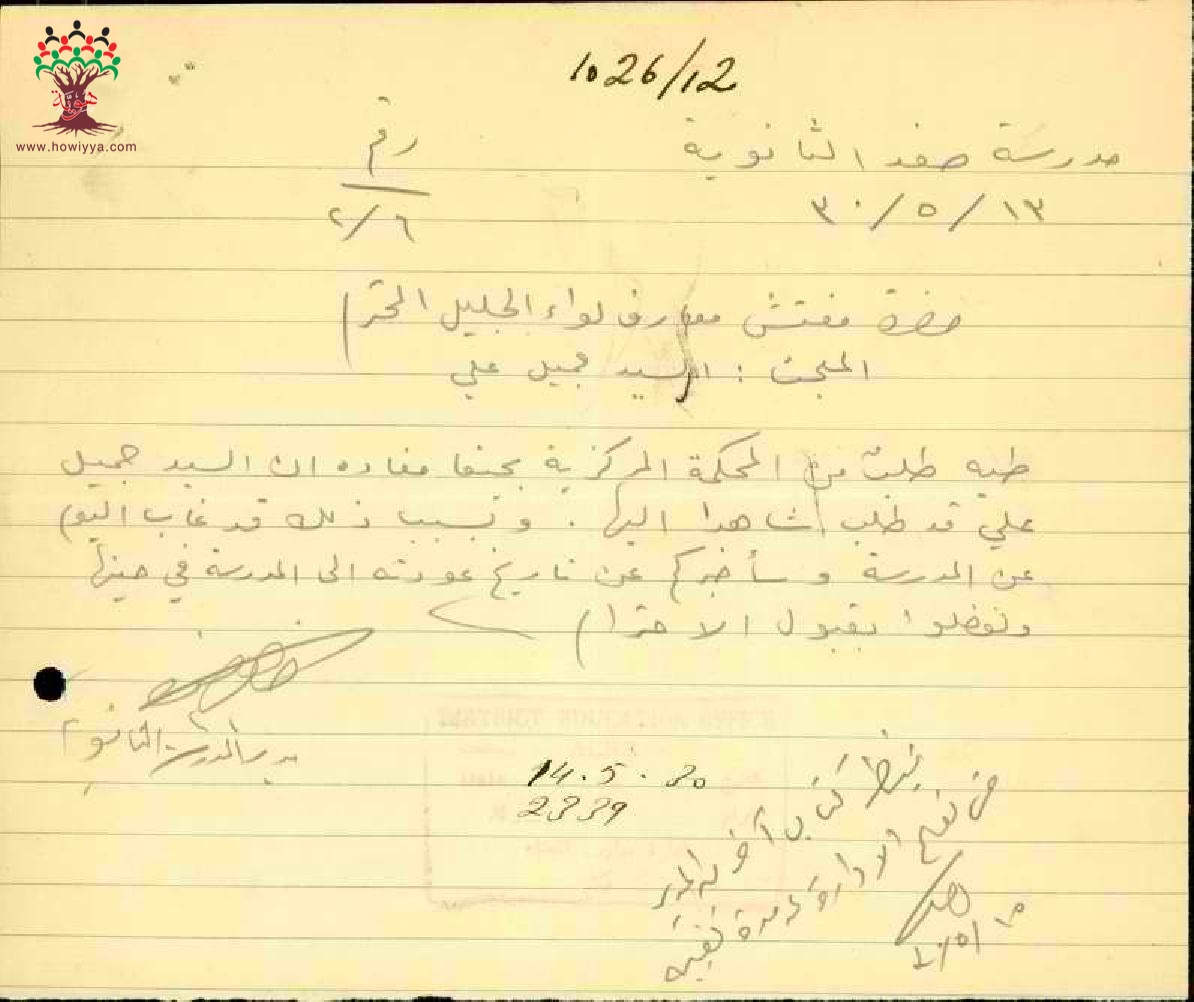 هوية
www.howiyya.com
1026/12
مدرسة صفد الثانوية
رقم
١٣/٥/٣٠
٢/٦
حضرة مفتش معارف لواء الجليل المحترم
المبحث : السيد جميل علي
طيه طلب من المحكمة المركزية بحيفا مفاده ان السيد جميل
علي قد طلب شاهدا اليها . وبسبب ذلك قد غاب اليوم
عن المدرسة وسأخبركم عن تاريخ عودته الى المدرسة في حينها
وتفضلوا بقبول الاحترام
مدير المدرسة الثانوية
14.5.30
2339
ينتظر كتاب آخر من المدير
الادارة لمدة